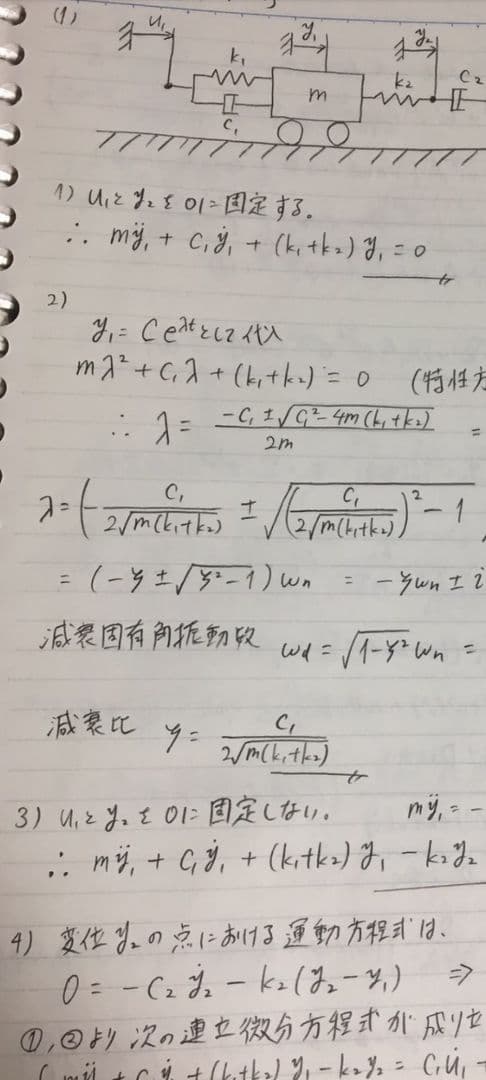 (1)
u₁ y₁ y₂
k₁ m k₂ C₂
C₁
1) u₁とy₂を0に固定する。
∴ mÿ₁ + C₁ẏ₁ + (k₁+k₂) y₁ = 0
2)
y₁ = Ce^λt として代入
mλ² + C₁λ + (k₁+k₂) = 0 (特性方
∴ λ = (-C₁ ± √(C₁² - 4m(k₁+k₂))) / 2m =
λ = (- C₁ / 2√(m(k₁+k₂)) ± √((C₁ / 2√(m(k₁+k₂)))² - 1)
= (-ζ ± √(ζ²-1)) ωn = -ζωn ± i
減衰固有角振動数 ωd = √(1-ζ²) ωn =
減衰比 ζ = C₁ / 2√(m(k₁+k₂))
3) u₁とy₂を0に固定しない。 mÿ₁ = -
∴ mÿ₁ + C₁ẏ₁ + (k₁+k₂) y₁ - k₂y₂
4) 変位y₂の点における運動方程式は、
0 = -C₂ẏ₂ - k₂(y₂-y₁) ⇒
①,②より次の連立微分方程式が成り立
(mÿ₁ + C₁ẏ₁ + (k₁+k₂) y₁ - k₂y₂ = C₁u̇₁ +